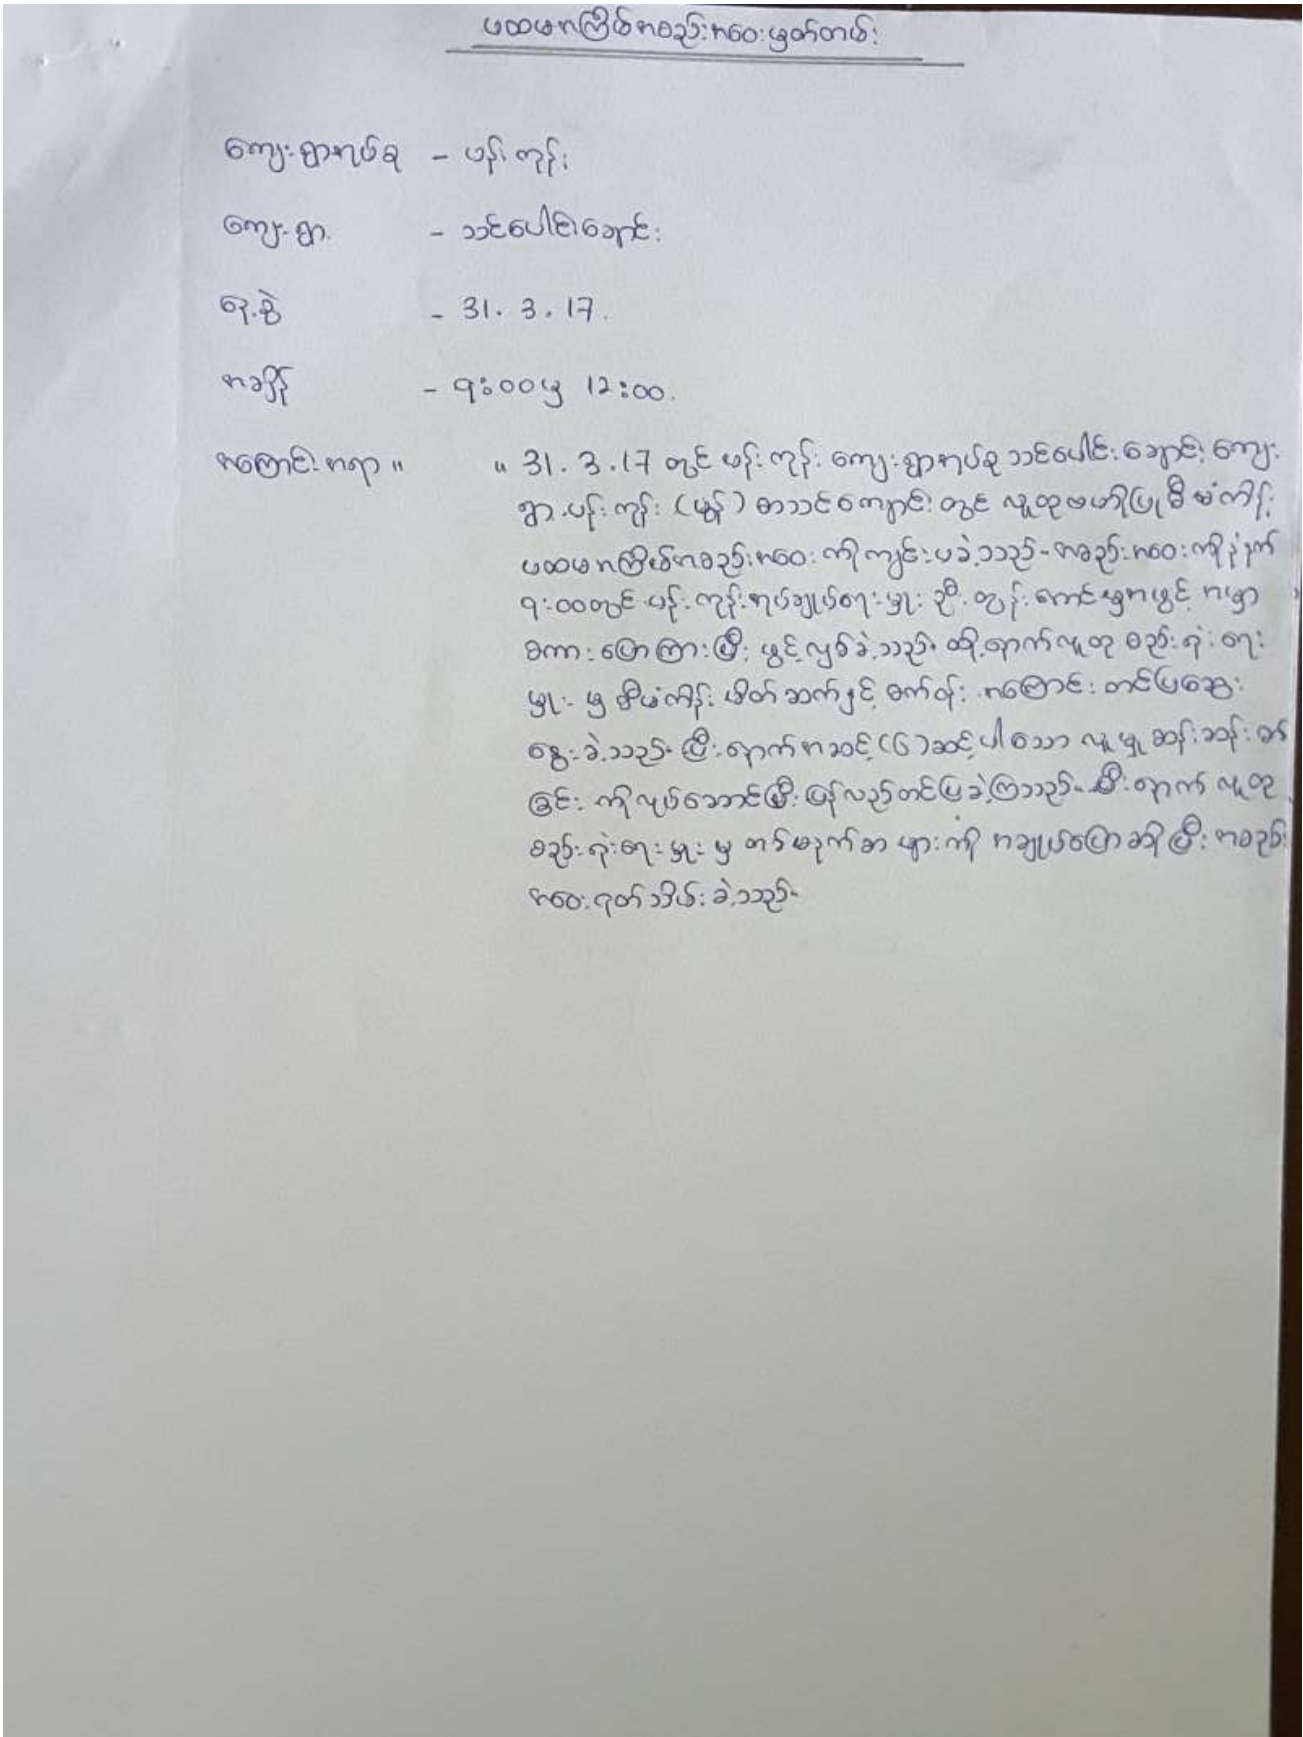 ပထမအကြိမ်အစည်းအဝေးမှတ်တမ်း
ကျေးရွာအုပ်စု - ပန်းကုန်း
ကျေးရွာ - သင်ပေါင်းချောင်း
နေ့စွဲ - 31.3.17.
အချိန် - ၅:၀၀မှ 12:00.
အကြောင်းအရာ " " 31.3.17 တွင် ပန်းကုန်းကျေးရွာအုပ်စု သင်ပေါင်းချောင်းကျေး
ရွာ ပန်းကုန်း (မွန်) စာသင်ကျောင်းတွင် လူထုဗဟိုပြုစီမံကိန်း
ပထမအကြိမ်အစည်းအဝေးကိုကျင်းပခဲ့သည်- အစည်းအဝေးကိုနံနက်
၅:၀၀တွင် ပန်းကုန်းအုပ်ချုပ်ရေးမှူး ဦးထွန်းအောင်မှအဖွင့်အမှာ
စကားပြောကြားပြီး ဖွင့်လှစ်ခဲ့သည်- ထို့နောက်လူထုစည်းရုံးရေး
မှူး မှ စီမံကိန်း မိတ်ဆက်နှင့် စက်ဝန်းအကြောင်း တင်ပြဆွေး
နွေးခဲ့သည်- ပြီးနောက်အဆင့်(၆)ဆင့်ပါသော လူမှုဆန်းစစ်
ခြင်း ကိုလုပ်ဆောင်ပြီးပြန်လည်တင်ပြခဲ့ကြသည်- ပြီးနောက် လူထု
စည်းရုံးရေးမှူးမှ တစ်မနက်စာများကို အချုပ်ပြောဆိုပြီး အစည်း
အဝေးရုတ်သိမ်းခဲ့သည်-